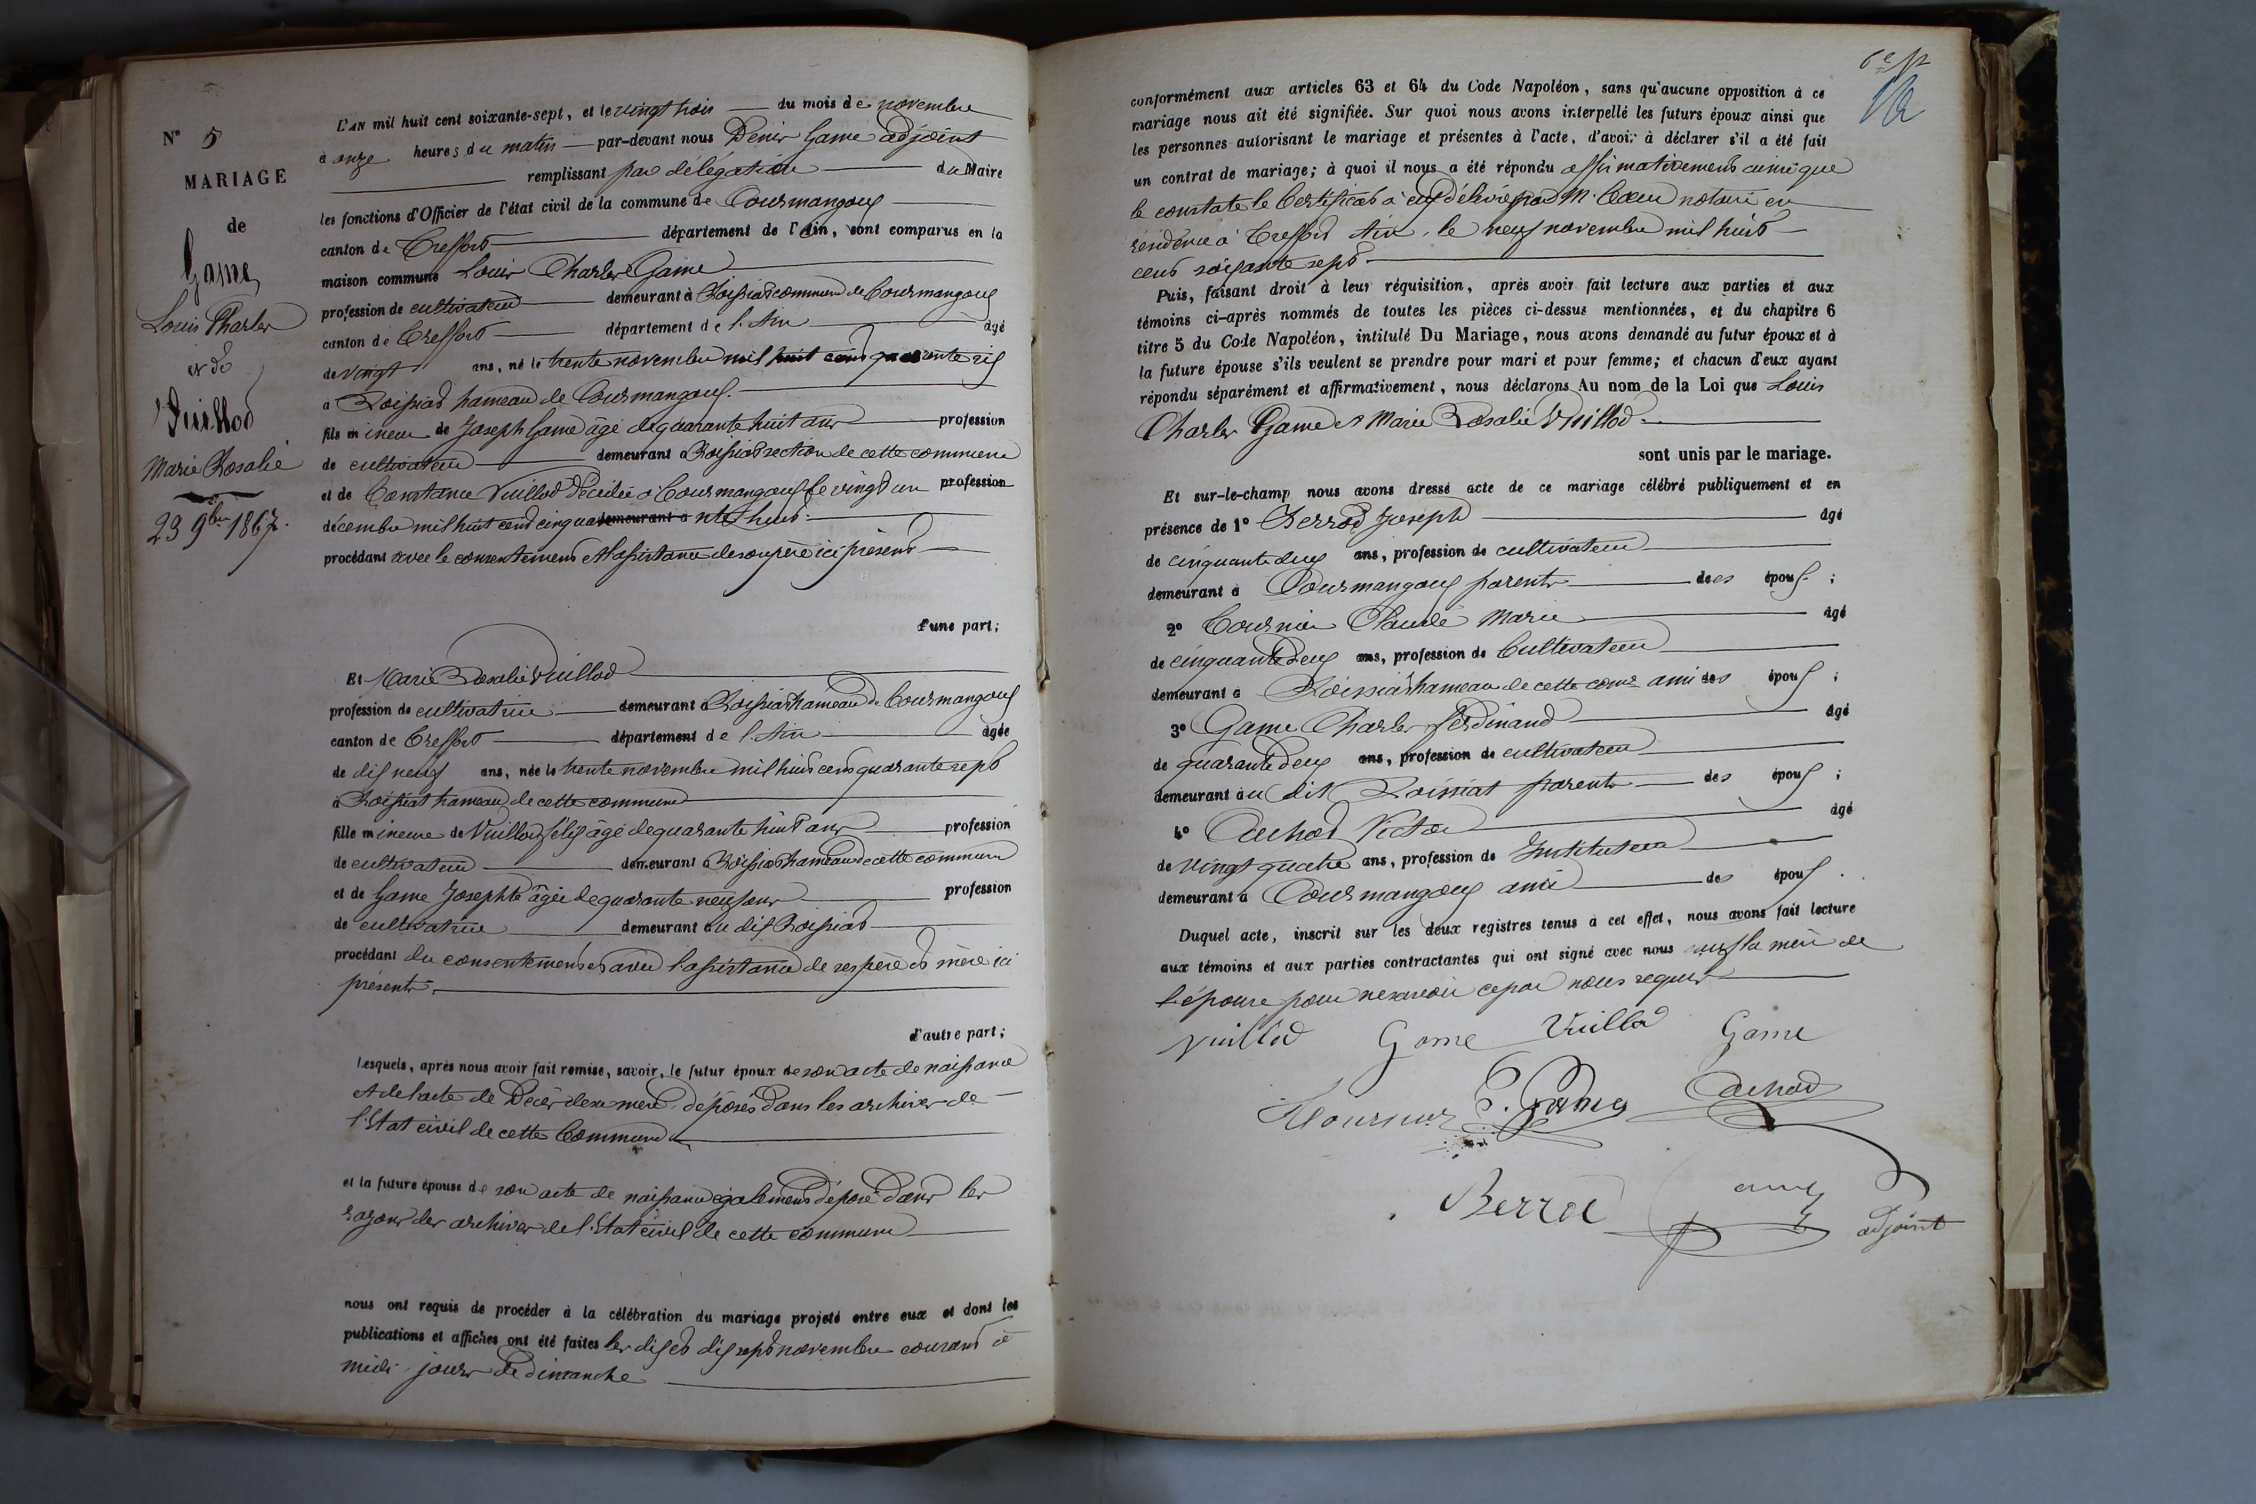 N° 5
MARIAGE
de
Game
Louis Charles
et de
Vuillod
Marie Rosalie
23 9bre 1867.
L'AN mil huit cent soixante-sept, et le vingt trois du mois de novembre
à onze heures du matin par-devant nous Denis Game adjoint
remplissant par délégation du Maire
les fonctions d'Officier de l'état civil de la commune de Courmangoux
canton de Treffort département de l'Ain, sont comparus en la
maison commune Louis Charles Game
profession de cultivateur demeurant à Roissiat commune de Courmangoux
canton de Treffort département de l'Ain âgé
de vingt ans, né le trente novembre mil huit cent quarante six
à Roissiat hameau de Courmangoux.
fils mineur de Joseph Game âgé de quarante huit ans profession
de cultivateur demeurant à Roissiat section de cette commune
et de Constance Vuillod décédée à Courmangoux le vingt un profession
décembre mil huit cent cinquante huit demeurant à
procédant avec le consentement et l'assistance de son père ici présent
d'une part;
Et Marie Rosalie Vuillod
profession de cultivatrice demeurant à Roissiat hameau de Courmangoux
canton de Treffort département de l'Ain âgée
de dix neuf ans, née le trente novembre mil huit cent quarante sept
à Roissiat hameau de cette commune
fille mineure de Vuillod Félix âgé de quarante huit ans profession
de cultivateur demeurant à Roissiat hameau de cette commune
et de Game Josephte âgée de quarante neuf ans profession
de cultivatrice demeurant au dit Roissiat
procédant du consentement et avec l'assistance de ses père et mère ici
présents.
d'autre part;
Lesquels, après nous avoir fait remise, savoir, le futur époux de son acte de naissance
et de l'acte de Décès de sa mère déposés dans les archives de
l'Etat civil de cette Commune
et la future épouse de son acte de naissance également déposé dans les
rayons des archives de l'Etat civil de cette commune
nous ont requis de procéder à la célébration du mariage projeté entre eux et dont les
publications et affiches ont été faites les dix et dix sept novembre courant à
midi jours de dimanche
6e
conformément aux articles 63 et 64 du Code Napoléon, sans qu'aucune opposition à ce
mariage nous ait été signifiée. Sur quoi nous avons interpellé les futurs époux ainsi que
les personnes autorisant le mariage et présentes à l'acte, d'avoir à déclarer s'il a été fait
un contrat de mariage; à quoi il nous a été répondu affirmativement ainsi que
le constate le Certificat à eux délivré par M. Cœur notaire en
résidence à Treffort Ain, le neuf novembre mil huit
cent soixante sept.
Puis, faisant droit à leur réquisition, après avoir fait lecture aux parties et aux
témoins ci-après nommés de toutes les pièces ci-dessus mentionnées, et du chapitre 6
titre 5 du Code Napoléon, intitulé Du Mariage, nous avons demandé au futur époux et à
la future épouse s'ils veulent se prendre pour mari et pour femme; et chacun d'eux ayant
répondu séparément et affirmativement, nous déclarons Au nom de la Loi que Louis
Charles Game et Marie Rosalie Vuillod
sont unis par le mariage.
Et sur-le-champ nous avons dressé acte de ce mariage célébré publiquement et en
présence de 1° Berrod Joseph âgé
de cinquante deux ans, profession de cultivateur
demeurant à Courmangoux parent des époux ;
2° Tournier Claude Marie âgé
de cinquante deux ans, profession de Cultivateur
demeurant à Roissiat hameau de cette come ami des époux ;
3° Game Charles Ferdinand âgé
de quarante deux ans, profession de cultivateur
demeurant au dit Roissiat parent des époux ;
4° Cachod Victor âgé
de vingt quatre ans, profession de Instituteur
demeurant à Courmangoux ami des époux.
Duquel acte, inscrit sur les deux registres tenus à cet effet, nous avons fait lecture
aux témoins et aux parties contractantes qui ont signé avec nous sauf la mère de
l'épouse pour ne savoir ce par nous requis
Vuillod Game Vuillod Game
Tournier Game Cachod
Berrod
adjoint